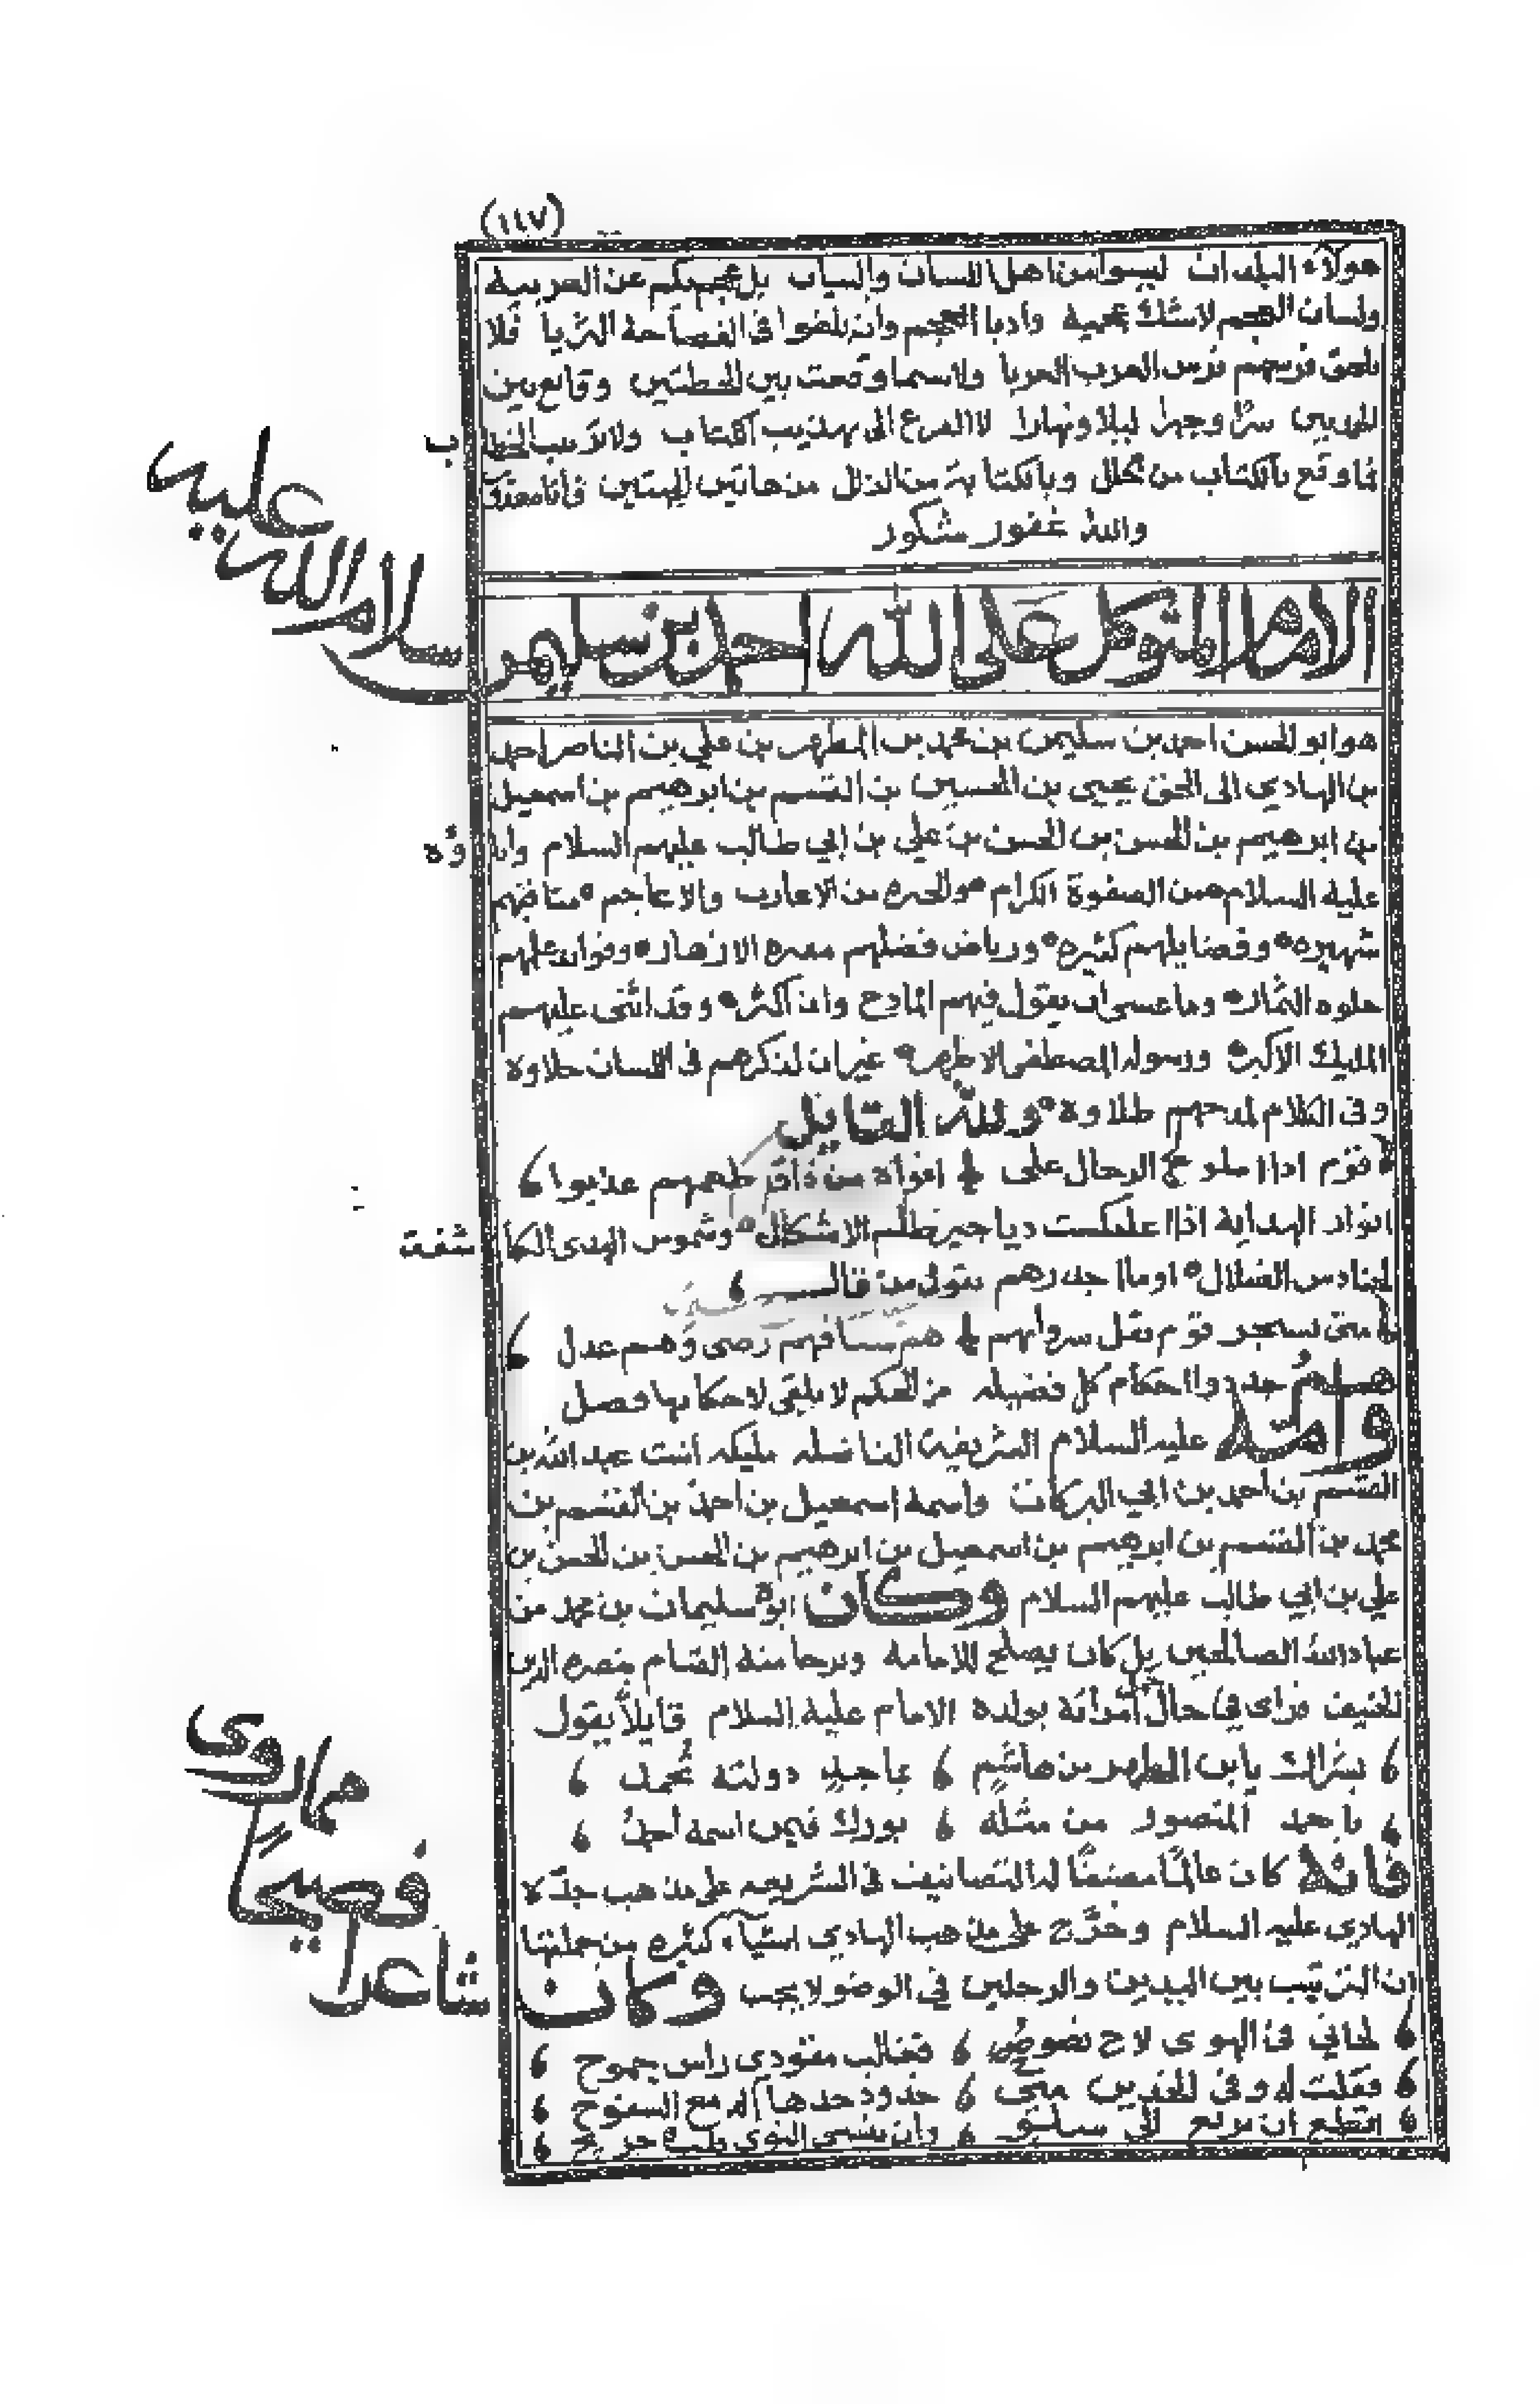 (١١٧)
هولاء البلدان ليسوا من اهل اللسان والبيان بل عجميتكم عن العربية
ولسان العجم لاشك عجمية وادبا العجم وان بلغوا فى الفصاحة الثريا فلا
تلحق فرسهم فرس العرب العربا ولاسيما وقعت بين الخطتين وقايع بين
سرّا وجهرا ليلا ونهارا الى تهذيب الكتاب ولا الخطاب
فما وقع بالكتاب من خلل وبالكتابة من الزلل من هاتين
والله غفور شكور
الامام المتوكل على الله احمد بن سليمن سلام الله عليه
هو ابو الحسن احمد بن سليمن بن محمد بن المطهر بن علي بن الناصر احمد
بن الهادي الى الحق يحيى بن الحسين بن القسم بن ابرهيم بن اسمعيل
بن ابرهيم بن الحسن بن الحسن بن علي بن ابي طالب عليهم السلام واباؤه
عليه السلام من الصفوة الكرام والخيره من الاعارب والاعاجم مناقبهم
شهيره وفضايلهم كثيره ورياض فضلهم الازهار وفوايد علمهم
حلوه الثمار وما عسى ان يقول فيهم المادح وان اكثر وقد اثنى عليهم
المليك الاكبر ورسوله المصطفى الاطهر غير ان لذكرهم فى اللسان حلاوة
وفى الكلام لمدحهم طلاوة ولله القايل
قوم اذا املولح الرجال على افواه من ذاق طعمهم عذبوا
انوار الهداية اذا دياجير ظلم الاشكال وشموس الهدى الكاشفة
لحنادس الضلال اوما اجدرهم بقول من قال
متى يشتجر قوم يقل سرواتهم هم بيننا فهم رضى وهم عدل
هم جددوا احكام كل فضيله من الحكم لا يلقى لاحكامها فصل
وامّه عليه السلام الشريفة الفاضله مليكه ابنت عبد الله بن
القسم بن احمد بن ابي البركات واسمه اسمعيل بن احمد بن القسم بن
محمد بن القسم بن ابرهيم بن اسمعيل بن ابرهيم بن الحسن بن الحسن بن
علي بن ابي طالب عليهم السلام وكان ابوه سليمان بن محمد من
عباد الله الصالحين بل كان يصلح للامامه ويرجا منه القيام بنصره الدين
الحنيف فراى في حال امرأته بولده الامام عليه السلام قايلاً يقول
بشراك يابن الطهر من هاشم بماجدٍ دولته تُحمد
باحمد المنصور من مثله بورك فيمن اسمه احمد
فانه كان عالمًا مصنفًا له التصانيف فى الشريعه على مذهب جدّه
الهادي عليه السلام وخرّج على مذهب الهادي اشياء كثيره من جملتها
ان الترتيب بين اليدين والرجلين في الوضو لا يجب وكان شاعرا فصيحًا مما روى
لحاني فى الهوى لاح نصوح فغالب مقودى راس جموح
فقلت له وفى الخدين منى خدود حدها مع السفوح
اتطمع ان الى سلو وان النوى قلب جريح